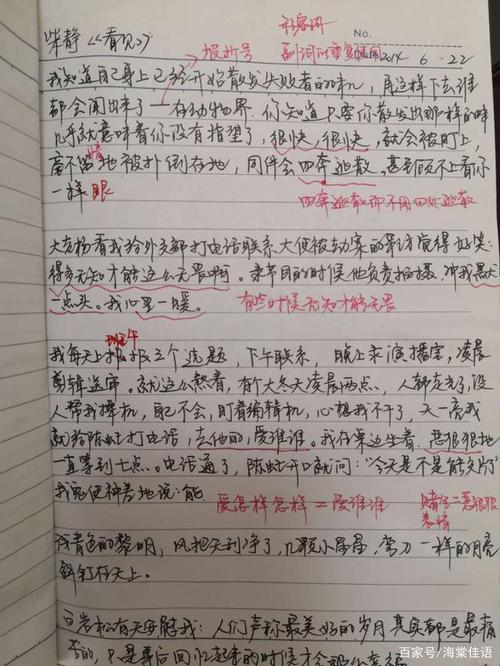 形容词
柴静《看见》
No.
破折号
副词的重复使用
2014. 6. 22
我知道自己身上已经开始散发失败者的味儿，再这样下去谁
都会闻出来了——在动物界，你知道只要你散发出那样的味
几乎就意味着你没有指望了，很快，很快，就会被盯上，
毫不留情地被扑倒在地，同伴会四奔逃散，甚至顾不上看你
一样 眼
四奔逃散而不用四处逃散
大老杨看我给外交部打电话联系大使被劫案的采访觉得好笑：
得多无知才能这么无畏啊。录节目的时候他负责拍摄，冲我默默
一点头。我心里一暖。
有些时候无知才能无畏
我每天上午报三个选题，下午联系，晚上录演播室，凌晨
剪辑送审。就这么熬着，有个大冬天凌晨两点，人都走光了，没
人帮我操机，自己不会，盯着编辑机，心想我不干了，天一亮我
就给陈虻打电话，去他的，爱谁谁。我在桌边坐着，恶狠狠地
一直等到七点。电话通了，陈虻开口就问：“今天是不是能交片
我鬼使神差地说：能
爱怎样怎样 = 爱谁谁
赌气 = 恶狠狠
表情
深青色的黎明，风把天刮净了，几颗小星星，弯刀一样的月亮
斜钉在天上。
白岩松有天安慰我：人们声称最美好的岁月其实都是最痛
苦的，只是事后回忆起来的时候才那么幸福
百家号/海棠佳语